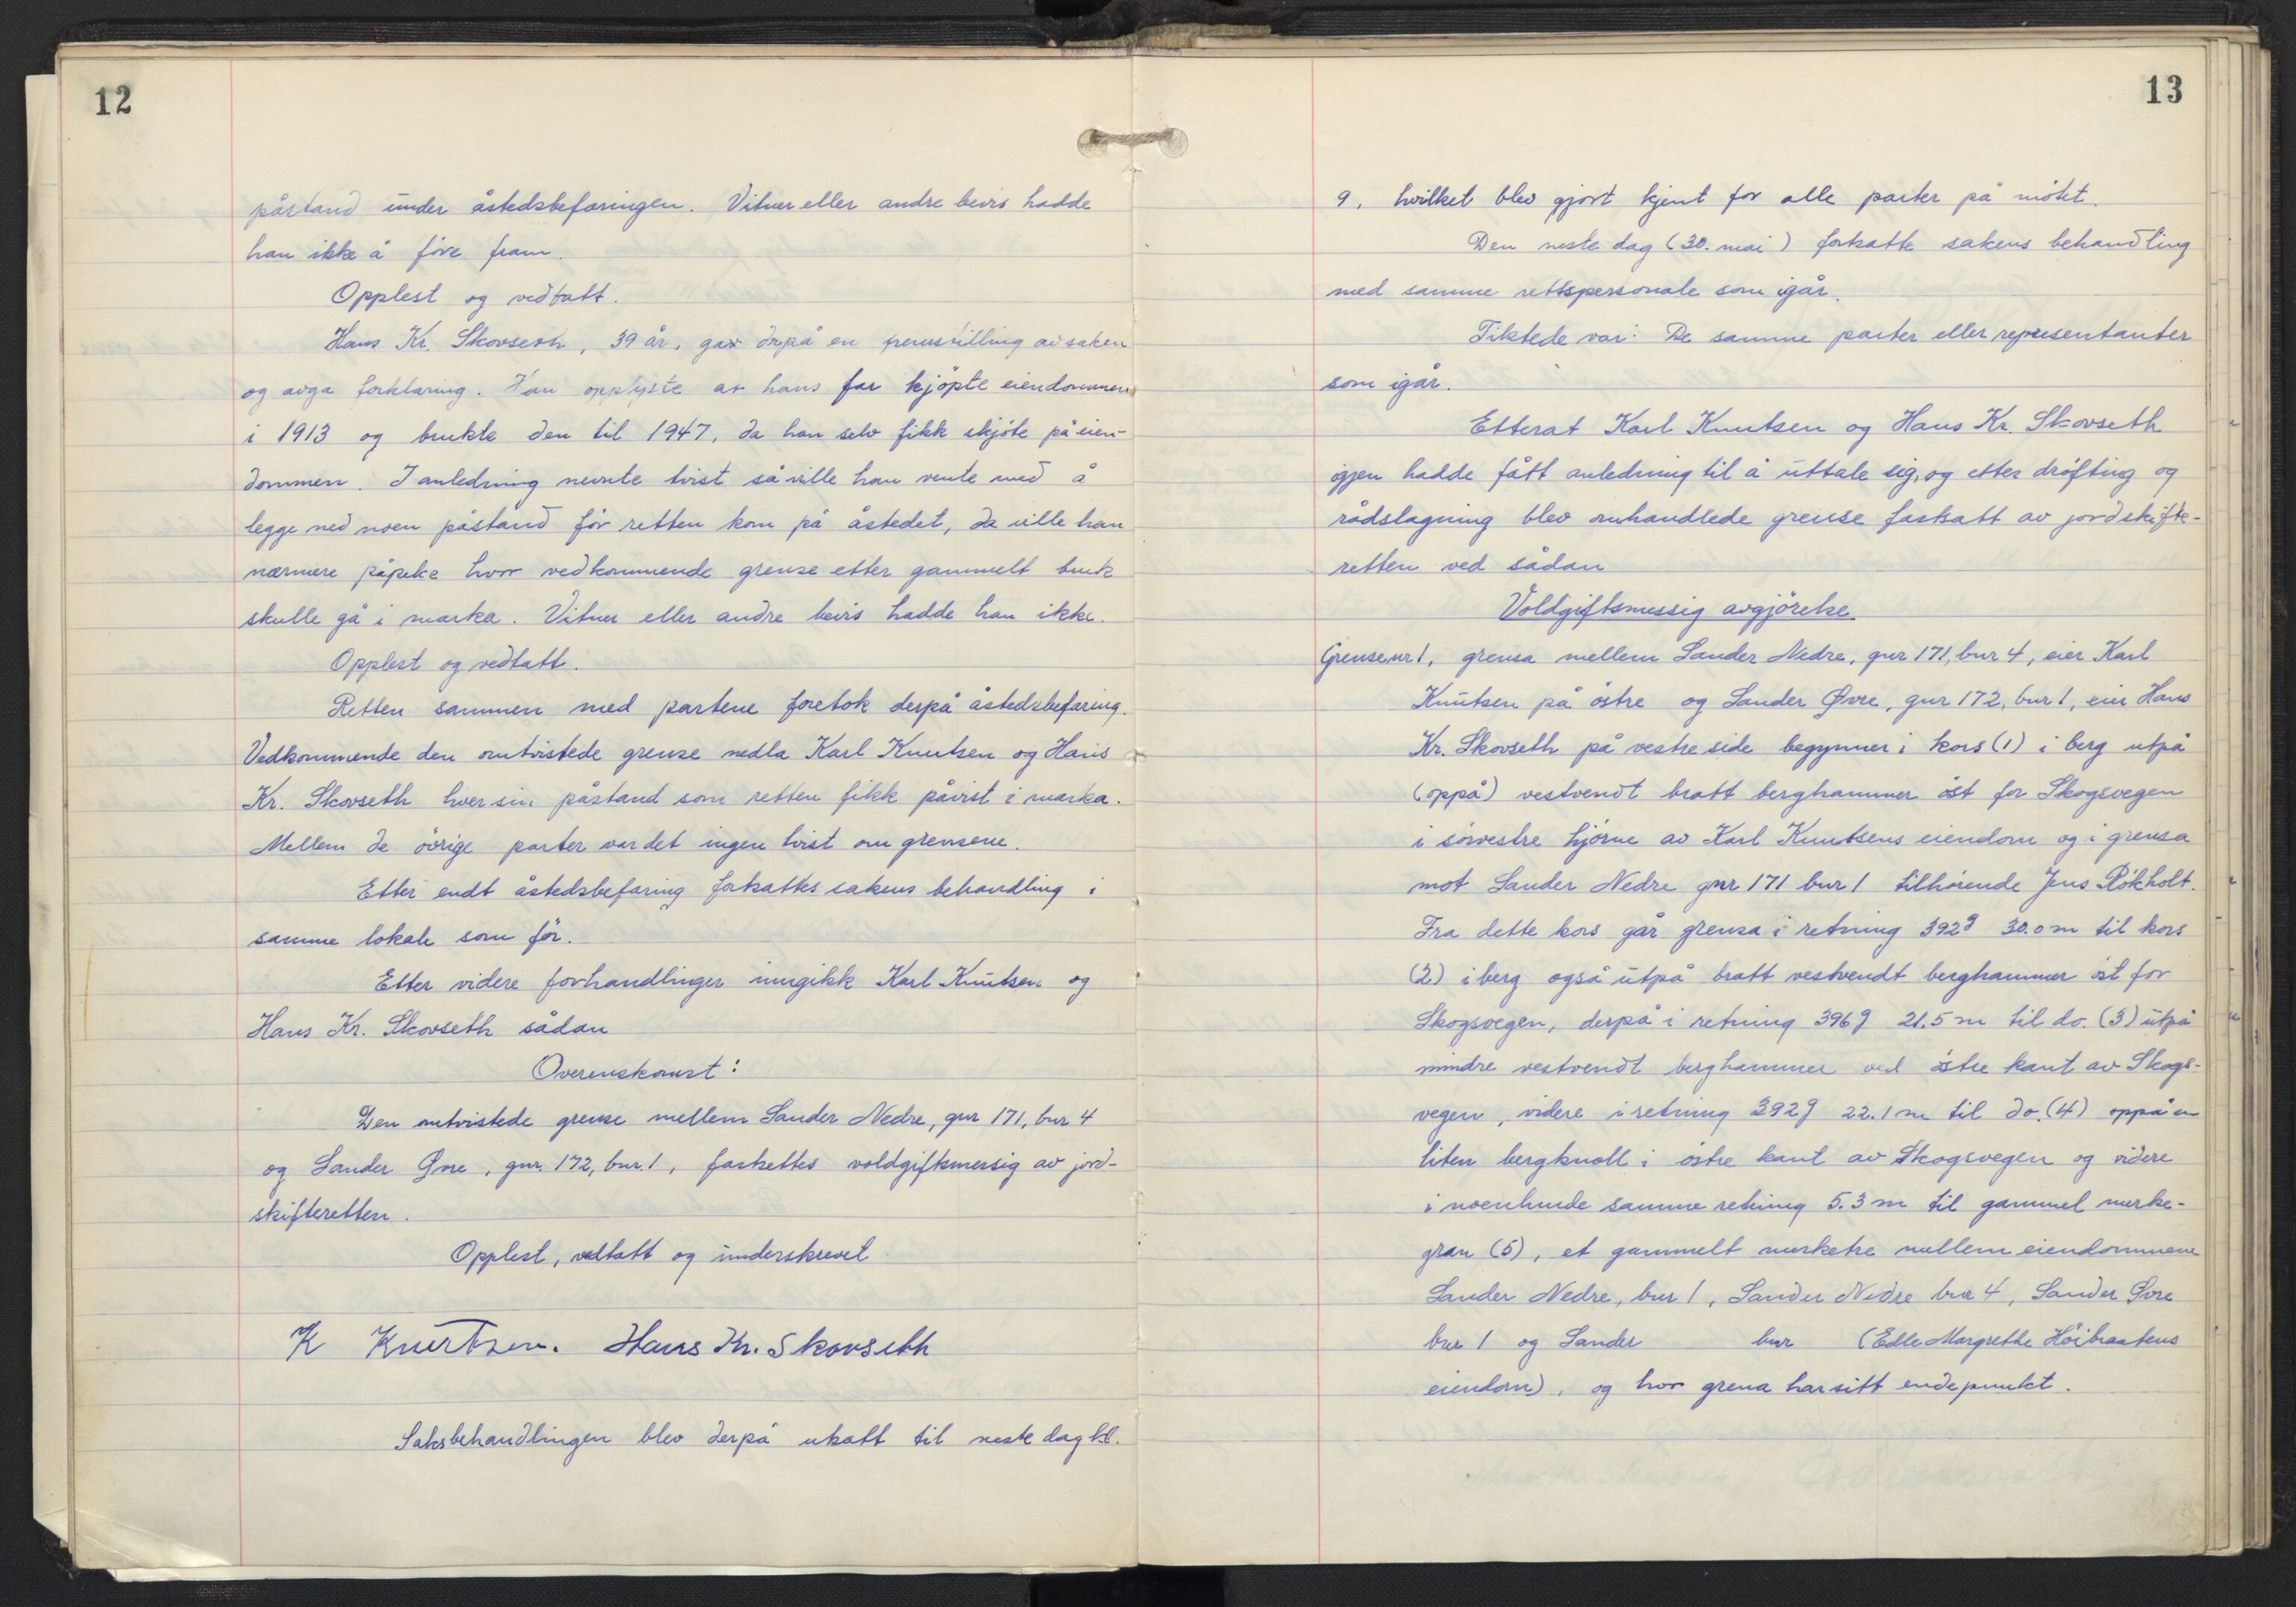 12
påstand under åstedsbefaringen. Vitner eller andre bevis hadde
han ikke å före fram.
Opplest og vedtatt.
Hans Kr. Skovseth, 39 år, gav derpå en fremstilling av saken
og avga forklaring. Han opplyste at hans far kjöpte eiendommen
i 1913 og brukte den til 1947, da han selv fikk skjöte på eien-
dommen. I anledning nevnte tvist så ville han vente med å
legge ned noen påstand för retten kom på åstedet, da ville han
nærmere påpeke hvor vedkommende grense etter gammelt bruk
skulle gå i marka. Vitner eller andre bevis hadde han ikke.
Opplest og vedtatt.
Retten sammen med partene foretok derpå åstedsbefaring.
Vedkommende den omtvistede grense nedla Karl Knutsen og Hans
Kr. Skovseth hver sin påstand som retten fikk påvist i marka.
Mellem de övrige parter var det ingen tvist om grensene.
Etter endt åstedsbefaring fortsattes sakens behandling i
samme lokale som för.
Etter videre forhandlinger inngikk Karl Knutsen og
Hans Kr. Skovseth sådan
Overenskomst:
Den omtvistede grense mellem Sander Nedre, gnr 171, bnr 4
og Sander Øvre, gnr. 172, bnr. 1, fastsettes voldgiftsmessig av jord-
skifteretten.
Opplest, vedtatt og underskrevet
K Knutsen. Hans Kr. Skovseth
Saksbehandlingen blev derpå utsatt til neste dag kl.
13
9, hvilket blev gjort kjent for alle parter på mötet.
Den neste dag (30. mai) fortsatte sakens behandling
med samme rettspersonale som igår.
Tiltede var: De samme parter eller representanter
som igår.
Etterat Karl Knutsen og Hans Kr. Skovseth
igjen hadde fått anledning til å uttale sig, og etter dröfting og
rådslagning blev omhandlede grense fastsatt av jordskifte-
retten ved sådan
Voldgiftsmessig avgjörelse.
Grense nr 1, grensa mellem Sander Nedre, gnr 171, bnr 4, eier Karl
Knutsen på östre og Sander Øvre, gnr 172, bnr 1, eier Hans
Kr. Skovseth på vestre side begynner i kors (1) i berg utpå
(oppå) vestvendt bratt berghammer öst for Skogsvegen
i sörvestre hjörne av Karl Knutsens eiendom og i grensa
mot Sander Nedre gnr 171 bnr 1 tilhörende Jens Rökholt.
Fra dette kors går grensa i retning 392g 30.0 m til kors
(2) i berg også utpå bratt vestvendt berghammer öst for
Skogsvegen, derpå i retning 396g 21.5 m til do. (3) utpå
mindre vestvendt berghammer ved östre kant av Skogs-
vegen, videre i retning 392g 22.1 m til do. (4) oppå en
liten bergknoll i östre kant av Skogsvegen og videre
i noenlunde samme retning 5.3 m til gammel merke-
gran (5), et gammelt merketre mellem eiendommene
Sander Nedre, bnr 1, Sander Nedre bnr 4, Sander Øvre
bnr 1 og Sander bnr (Edle Margrethe Höibraatens
eiendom), og hvor grensa har sitt endepunkt.